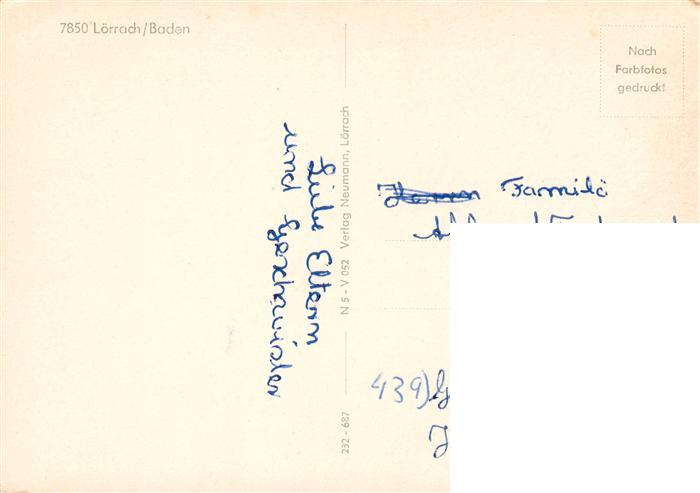 7850 Lörrach/Baden
Nach
Farbfotos
gedruckt
Liebe Eltern
und Geschwister
N 5 - V 052 Verlag Neumann, Lörrach
232 - 687
Herrn Familie
439)